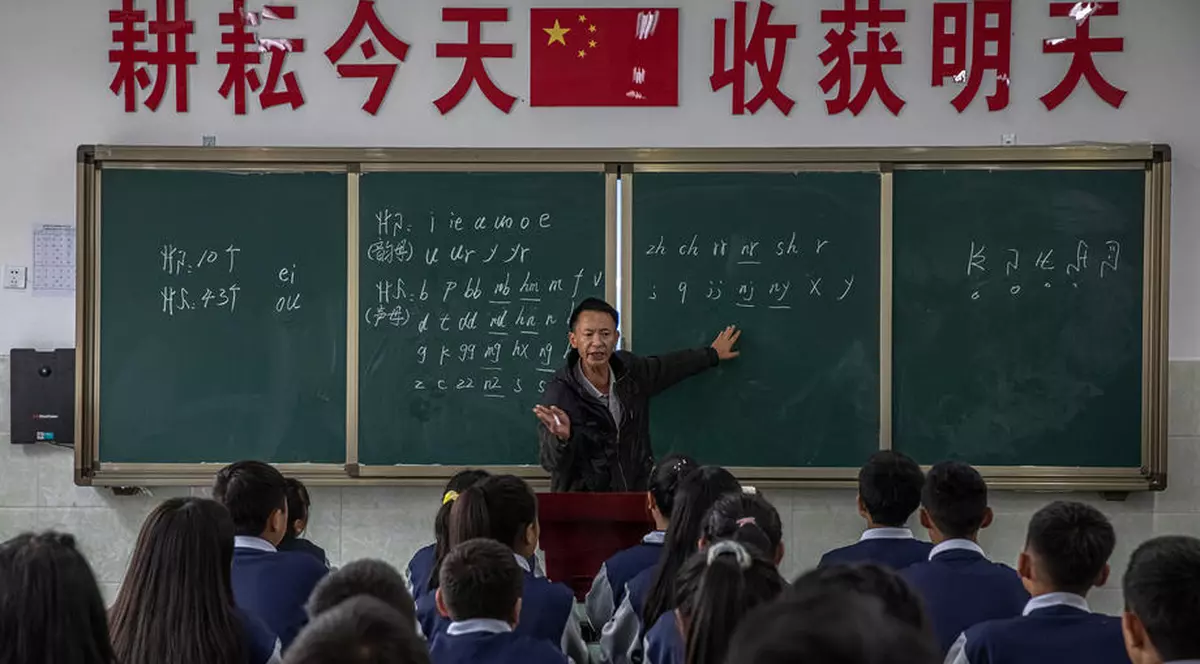 耕耘今天 收获明天
10个
43个
ei
ou
i ie a uo o e
(韵母) u ur y yr
b p bb nb hm m f v
(声母) d t dd nd hn n
g k gg mg hx ng
z c zz nz s
zh ch rr nr sh r
j q jj nj ny x y